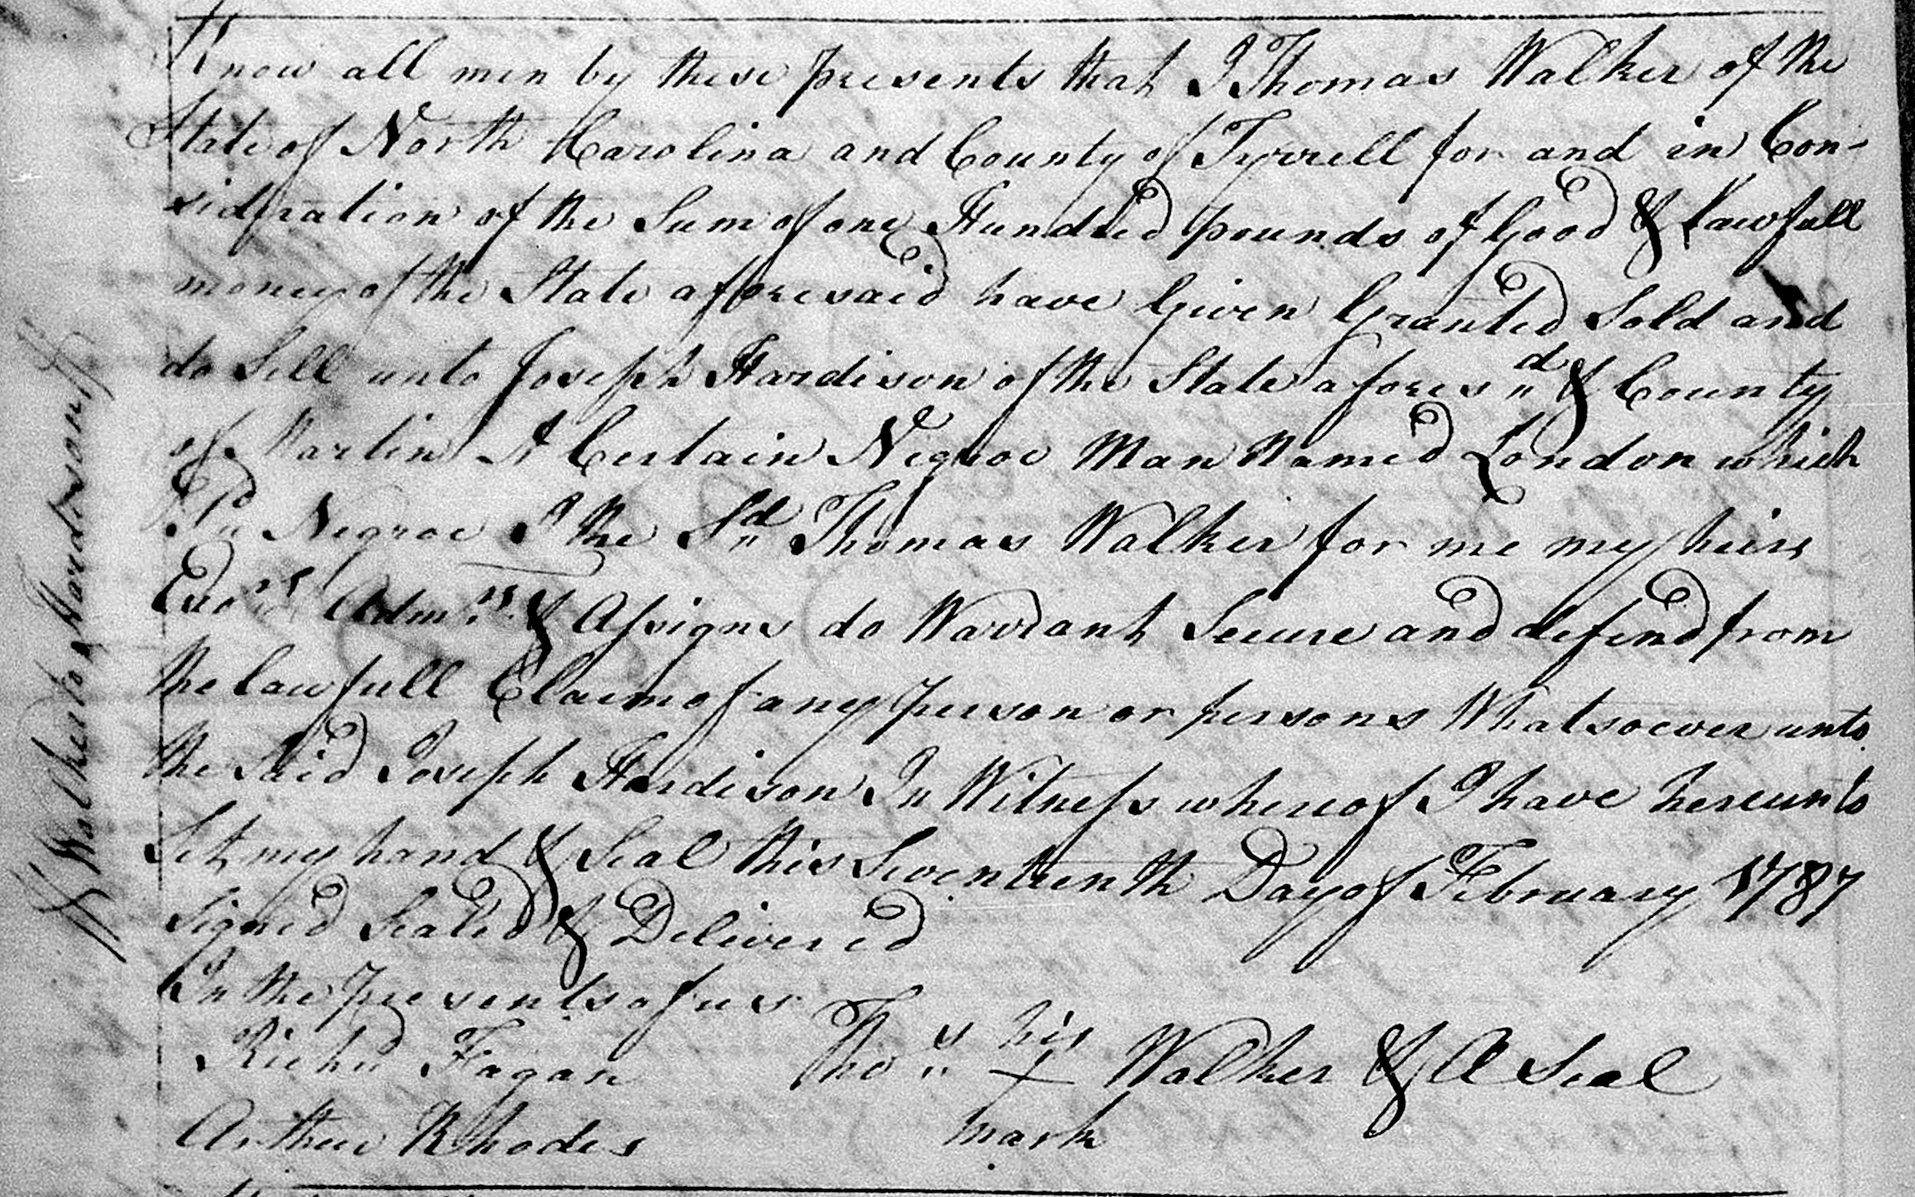 Know all men by these presents that I Thomas Walker of the
State of North Carolina and County of Tyrrell for and in Con-
sideration of the Sum of one Hundred pounds of Good & Lawfull
money of the State aforesaid have Given Granted Sold and
do Sell unto Joseph Hardison of the State afores〃d & County
of Martin A Certain Negroe Man Named London which
Sd〃 Negroe I the Sd〃 Thomas Walker for me my heirs
Exors Admrs & Assigns do Warrant Secure and defend from
the lawfull Claim of any person or persons Whatsoever unto
the Said Joseph Hardison In Witness whereof I have hereunto
Set my hand & Seal this Seventeenth Day of February 1787
Signed Sealed & Delivered
In the presents of us
Richd Fagan
Arthur Rhodes
Thos〃 his X mark Walker & A Seal
Walker to Hardison